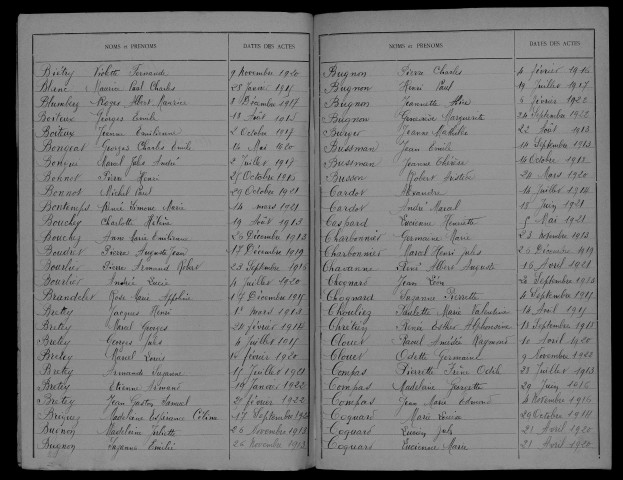 NOMS et PRÉNOMS DATES DES ACTES
Violette Fernande 9 Novembre 1920
Blanc Maurice Paul Charles 25 Janv 1917
Blumberg Roger Albert Maurice
Georges Emile 18 Août 1915
Boiteux Jeanne Emilienne 2 Octobre 1917
Bongeat Georges Charles Emile 16 Mai 1920
Marcel Jules André 2 Juillet 1917
Bohnot Pierre Henri Octobre
Bonnot Michel Paul 29 Octobre 1921
Bontemps Renée Simone Marie 14 mars 1921
Bouchey Charlotte Hélène 19 Août 1913
Bouchey Anne Marie Emilienne 26 Décembre 1913
Pierre Auguste Jean 17 Décembre 1919
Bourlier Pierre Armand Robert 23 Septembre 1916
Bourlier Andrée Lucie 4 Juillet 1920
Brandelet Rose Marie
Bretey Jacques Henri 1er mars 1913
Bretey Marcel Georges 20 février 1914
Bretey Georges Jules 6 Juillet 1917
Bretey Marcel Louis février 1920
Bretey Armande Suzanne 17 Juillet 1921
Bretey Etienne 19 Janvier 1922
Bretey Jean Gaston Samuel 21 février 1922
Madeleine Espérance Céline 17 Septembre
Bugnon Madeleine Juliette 25 Novembre 1913
Bugnon Suzanne Emilie 26 Novembre 1913
NOMS et PRÉNOMS DATES DES ACTES
Bugnon Pierre Charles 4 février 1914
Bugnon Henri Paul 19 Juillet 1917
Bugnon Jeannette Alice 5 février 1922
Bugnon Geneviève Marguerite 24 Septembre 1922
Burger Jeanne Mathilde 22 Août 1913
Bussman Jean Emile 14 Septembre 1913
Bussman Jeanne Thérèse 14 Octobre
Busson Robert 24 Mars 1920
Cardot Alexandre 14 Juillet 1914
Cardot André Marcel 18 Juin 1921
Caspard Lucienne Henriette 5 Mai 1921
Charbonnier Germaine Marie 23 Novembre 1913
Charbonnier Marcel Henri Jules 26 Décembre 1919
Chavanne René Albert Auguste 16 Avril 1921
Chognard Jean Léon Septembre
Chognard Suzanne Pierrette 4 Septembre 1917
Chouliez Paulette Marie Valentine 14 Avril 1917
Chrétien Renée Esther Alphonsine 18 Septembre 1915
Clouet Raoul Amédée Raymond 10 Avril 1920
Clouet Odette Germaine 9 Novembre 1922
Compas Pierrette Irène Odile 23 Juillet 1913
Compas Madeleine Georgette 29 Juin 1916
Compas Jean Marie Edmond 4 Novembre 1916
Coquard Marie Louise 20 Octobre
Coquard Lucien Jules 21 Avril 1920
Coquard Lucienne Marie 21 Avril 1920